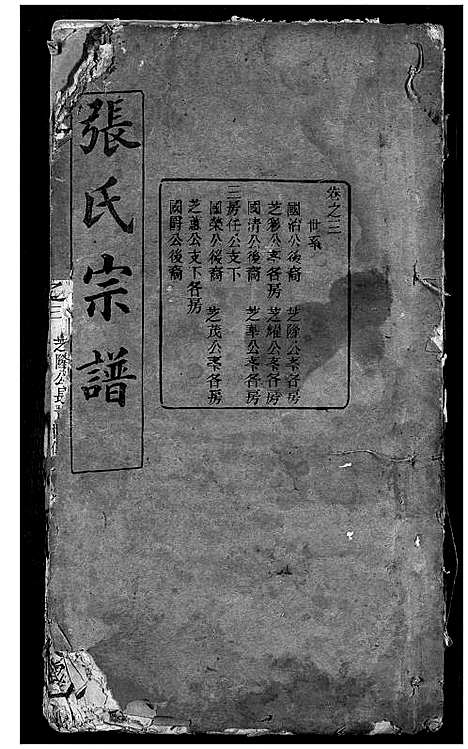 張氏宗譜
卷之三
世系
國治公後裔 芝隆公秊各房
芝彩公秊各房 芝耀公秊各房
國清公後裔 芝華公秊各房
三房任公支下
國榮公後裔 芝茂公秊各房
芝蕙公支下各房
國爵公後裔
之三 芝隆公長